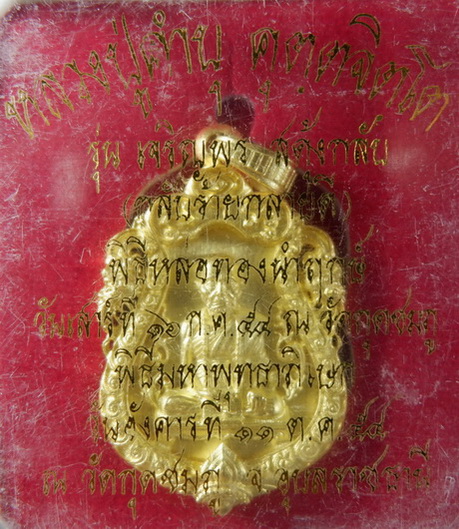 หลวงปู่คำบุ คุตฺตจิตฺโต
รุ่น เจริญพร เสด็จกลับ
(กลับร้ายกลายดี)
พิธีหล่อทองนำฤกษ์
วันเสาร์ที่ ๑๖ ก.ค.๕๔ ณ วัดกุดชมภู
พิธีมหาพุทธาภิเษก
วันอังคารที่ ๑๑ ต.ค.๕๔
ณ วัดกุดชมภู จ.อุบลราชธานี